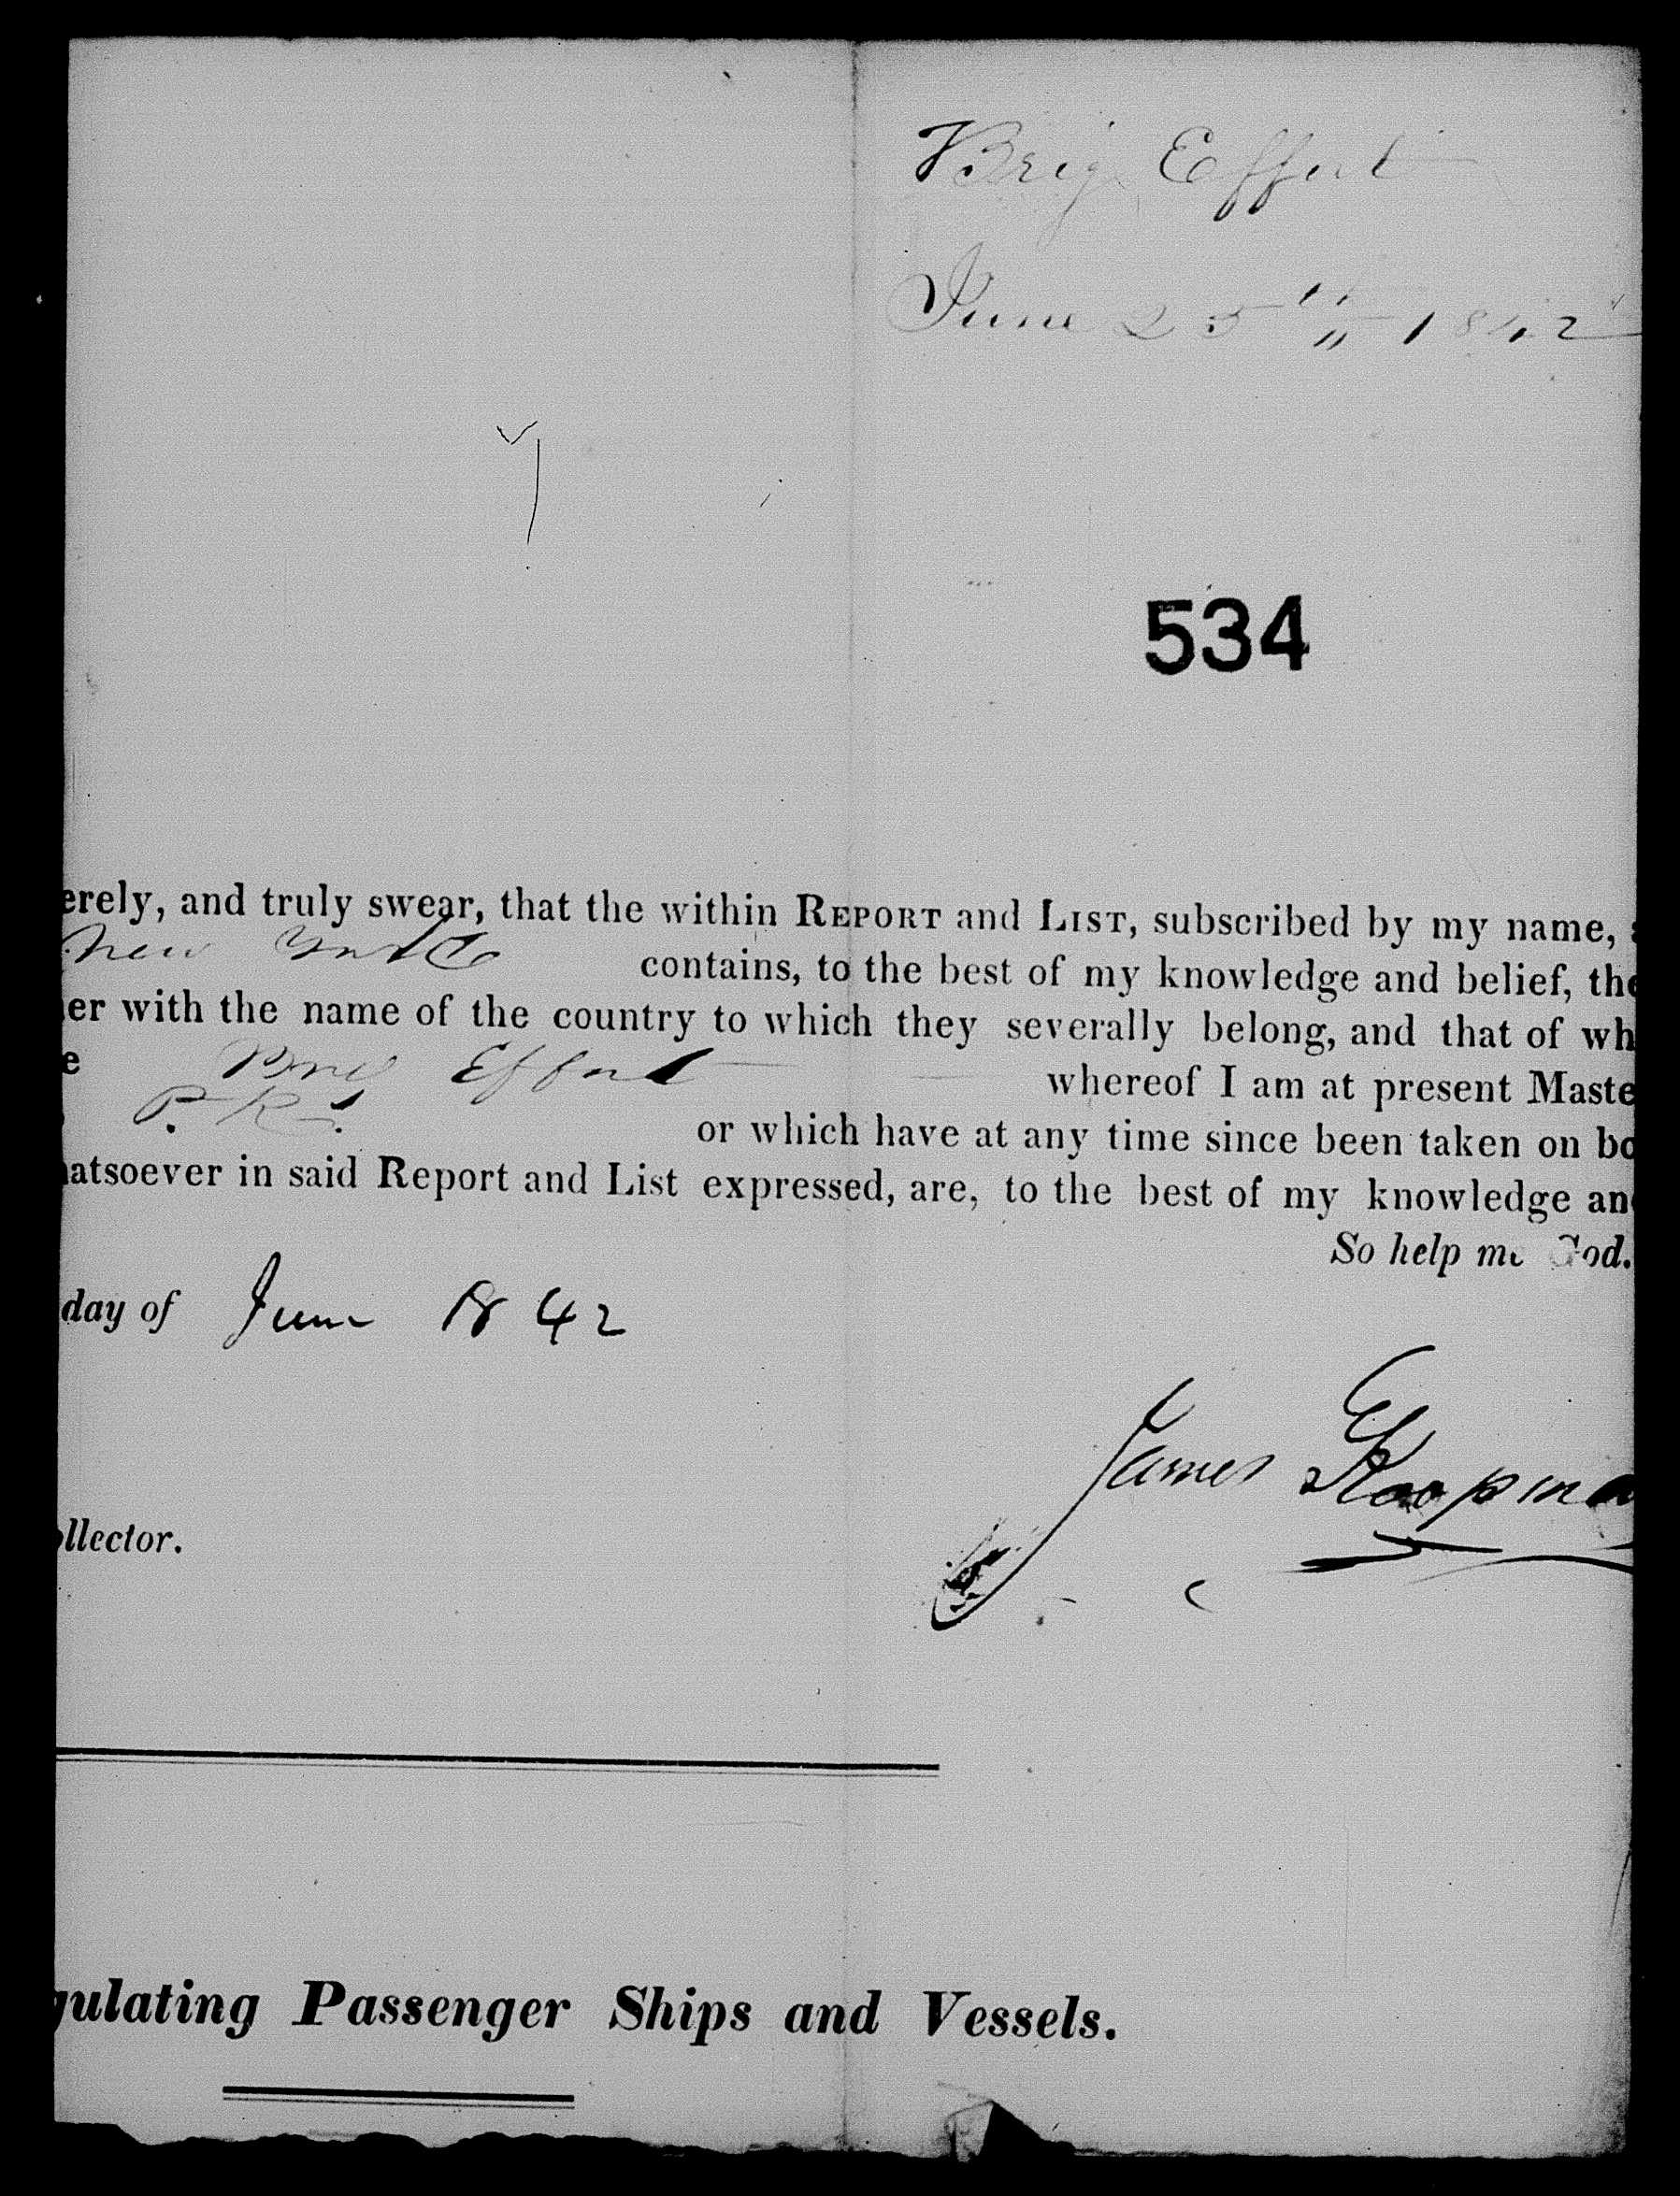 Brig Effort
June 25th 1842
534
erely, and truly swear, that the within REPORT and LIST, subscribed by my name, a
New York contains, to the best of my knowledge and belief, the
er with the name of the country to which they severally belong, and that of wh
e Brig Effort whereof I am at present Maste
P. R. or which have at any time since been taken on bo
atsoever in said Report and List expressed, are, to the best of my knowledge an
So help me God.
day of June 1842
James
ollector.
gulating Passenger Ships and Vessels.